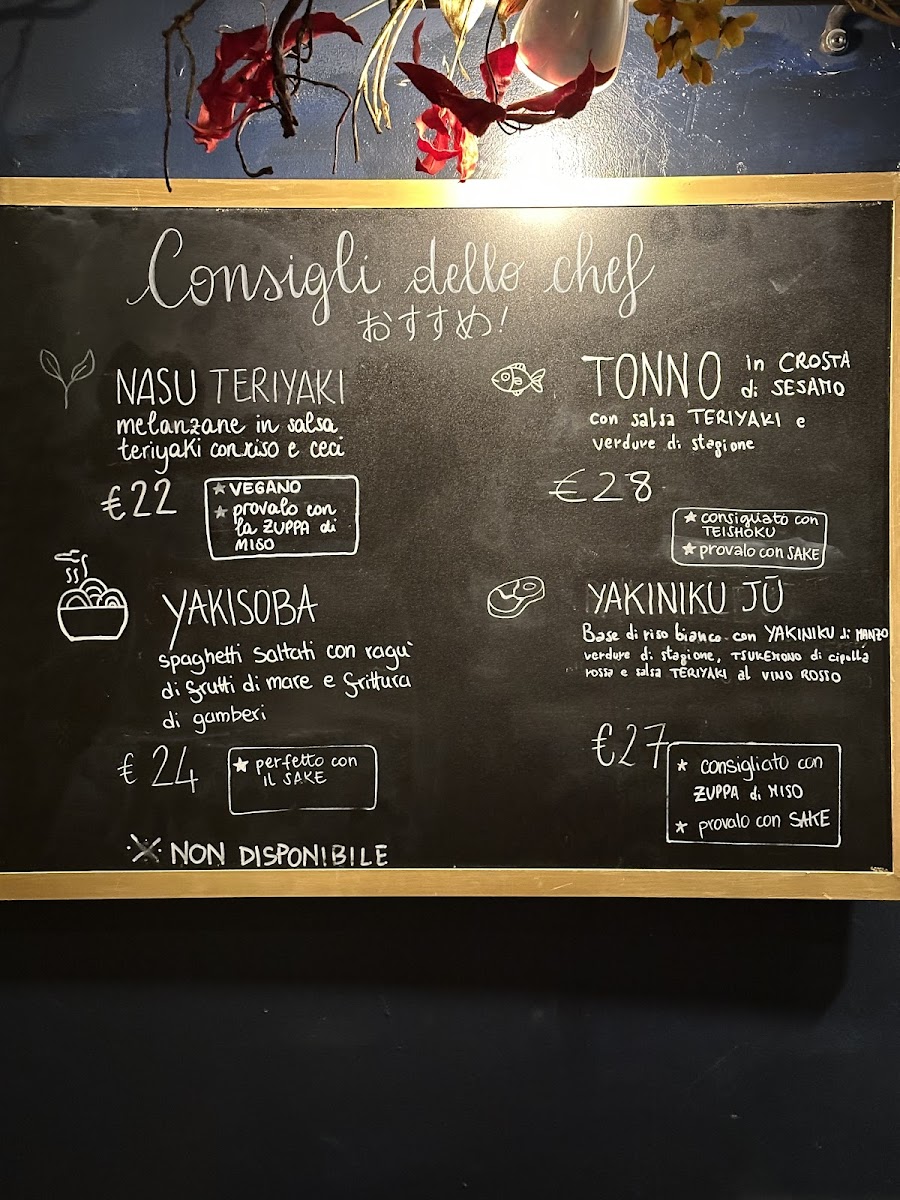 Consigli dello chef
おすすめ!
NASU TERIYAKI
melanzane in salsa
teriyaki con riso e ceci
€22
★ VEGANO
★ provalo con
la ZUPPA di
MISO
TONNO in CROSTA
di SESAMO
con salsa TERIYAKI e
verdure di stagione
€28
★ consigliato con
TEISHOKU
★ provalo con SAKE
YAKISOBA
spaghetti saltati con ragu'
di frutti di mare e frittura
di gamberi
€24
★ perfetto con
IL SAKE
YAKINIKU JŪ
Base di riso bianco con YAKINIKU di MANZO
verdure di stagione, TSUKEMONO di cipolla
rossa e salsa TERIYAKI al VINO ROSSO
€27
★ consigliato con
ZUPPA di MISO
★ provalo con SAKE
NON DISPONIBILE